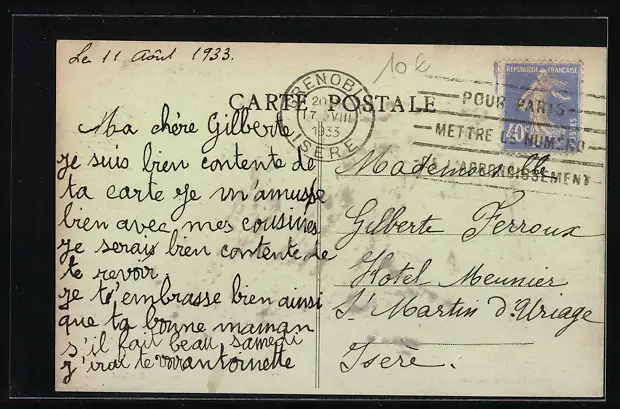 Le 11 Août 1933.
10 €
CARTE POSTALE
GRENOBLE
20
17 VIII
1933
ISERE
REPUBLIQUE FRANÇAISE
40
POSTES
POUR PARIS
METTRE LE NUMERO
DE L'ARRONDISSEMENT
Ma chère Gilberte
je suis bien contente de
ta carte je m'amuse
bien avec mes cousines
je serais bien contente de
te revoir.
je t'embrasse bien ainsi
que ta bonne maman
s'il fait beau samedi
j'irai te voir antoinette
Mademoiselle
Gilberte Ferroux
Hotel Meunier
St Martin d'Uriage
Isere.